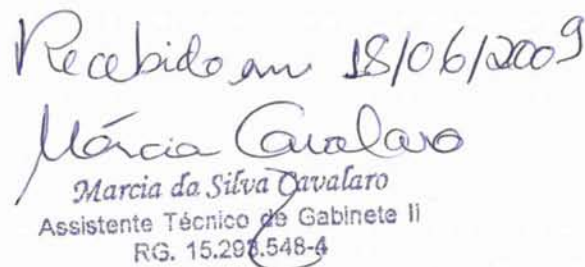 Recebido em 18/06/2009
Márcia Cavalaro
Marcia da Silva Cavalaro
Assistente Técnico de Gabinete II
RG. 15.298.548-4